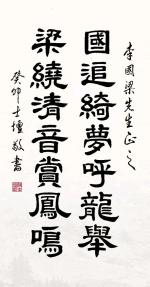 李國梁先生正之
國追綺夢呼龍舉
梁繞清音賞鳳鳴
癸卯士壇敬書